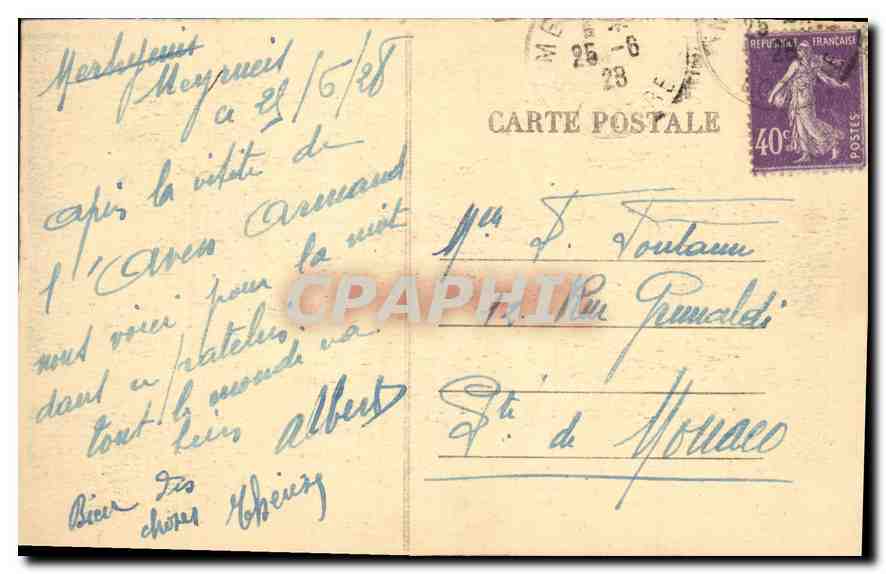 Meyrueis
a 25/6/28
après la visite de
l'Aven Armand
nous voici pour la nuit
dans ce patelin.
tout le monde va
bien Albert
Bien des
choses Thérèse
ME
25 -6
28
25
CARTE POSTALE
REPUBLIQUE FRANÇAISE
40c
POSTES
CPAPHIL
Mme D. Fontana
Rue Grimaldi
Pté de Monaco